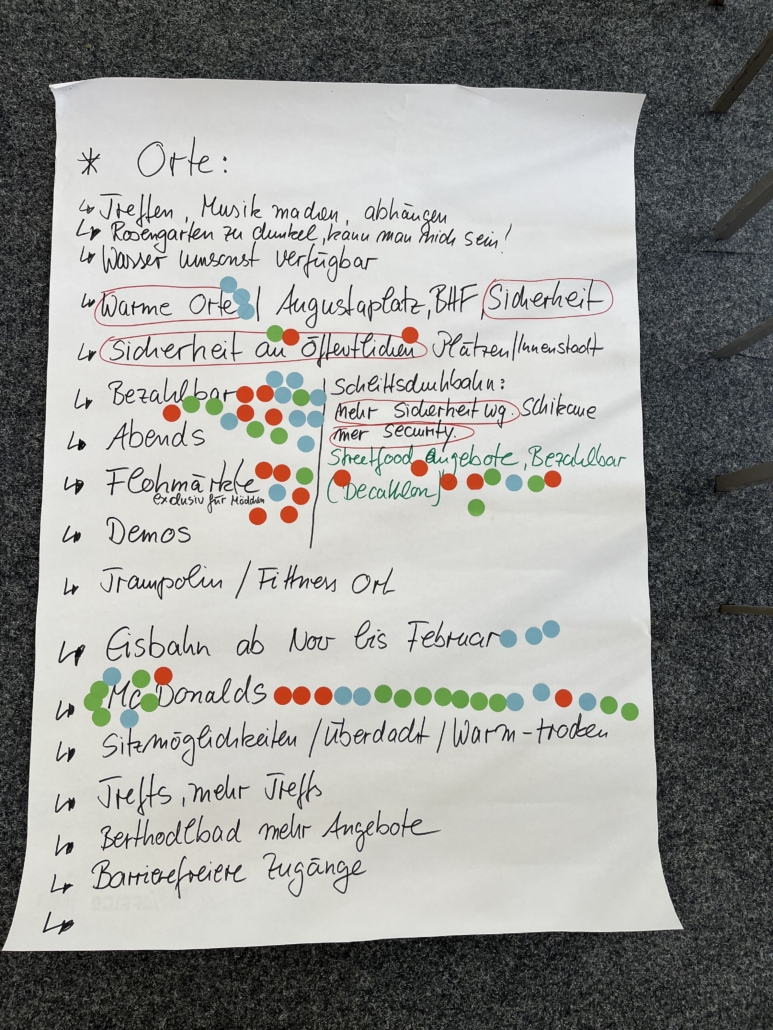 * Orte:
↳ Treffen, Musik machen, abhängen
↳ Rosengarten zu dunkel, kann man nich sein!
↳ Wasser umsonst verfügbar
↳ Warme Orte | Augustaplatz, BHF, Sicherheit
↳ Sicherheit an öffentlichen Plätzen/Innenstadt
↳ Bezahlbar
↳ Abends
↳ Flohmärkte
exclusiv für Mädchen
↳ Demos
Schlittschuhbahn:
Mehr Sicherheit wg. Schikane
mer Security.
Streetfood Angebote, Bezahlbar
(Decathlon)
↳ Trampolin / Fittness Ort
↳ Eisbahn ab Nov bis Februar
↳ Mc Donalds
↳ Sitzmöglichkeiten / Überdacht / Warm-trocken
↳ Treffs, mehr Treffs
↳ Bertholdbad mehr Angebote
↳ Barrierefreiere Zugänge
↳